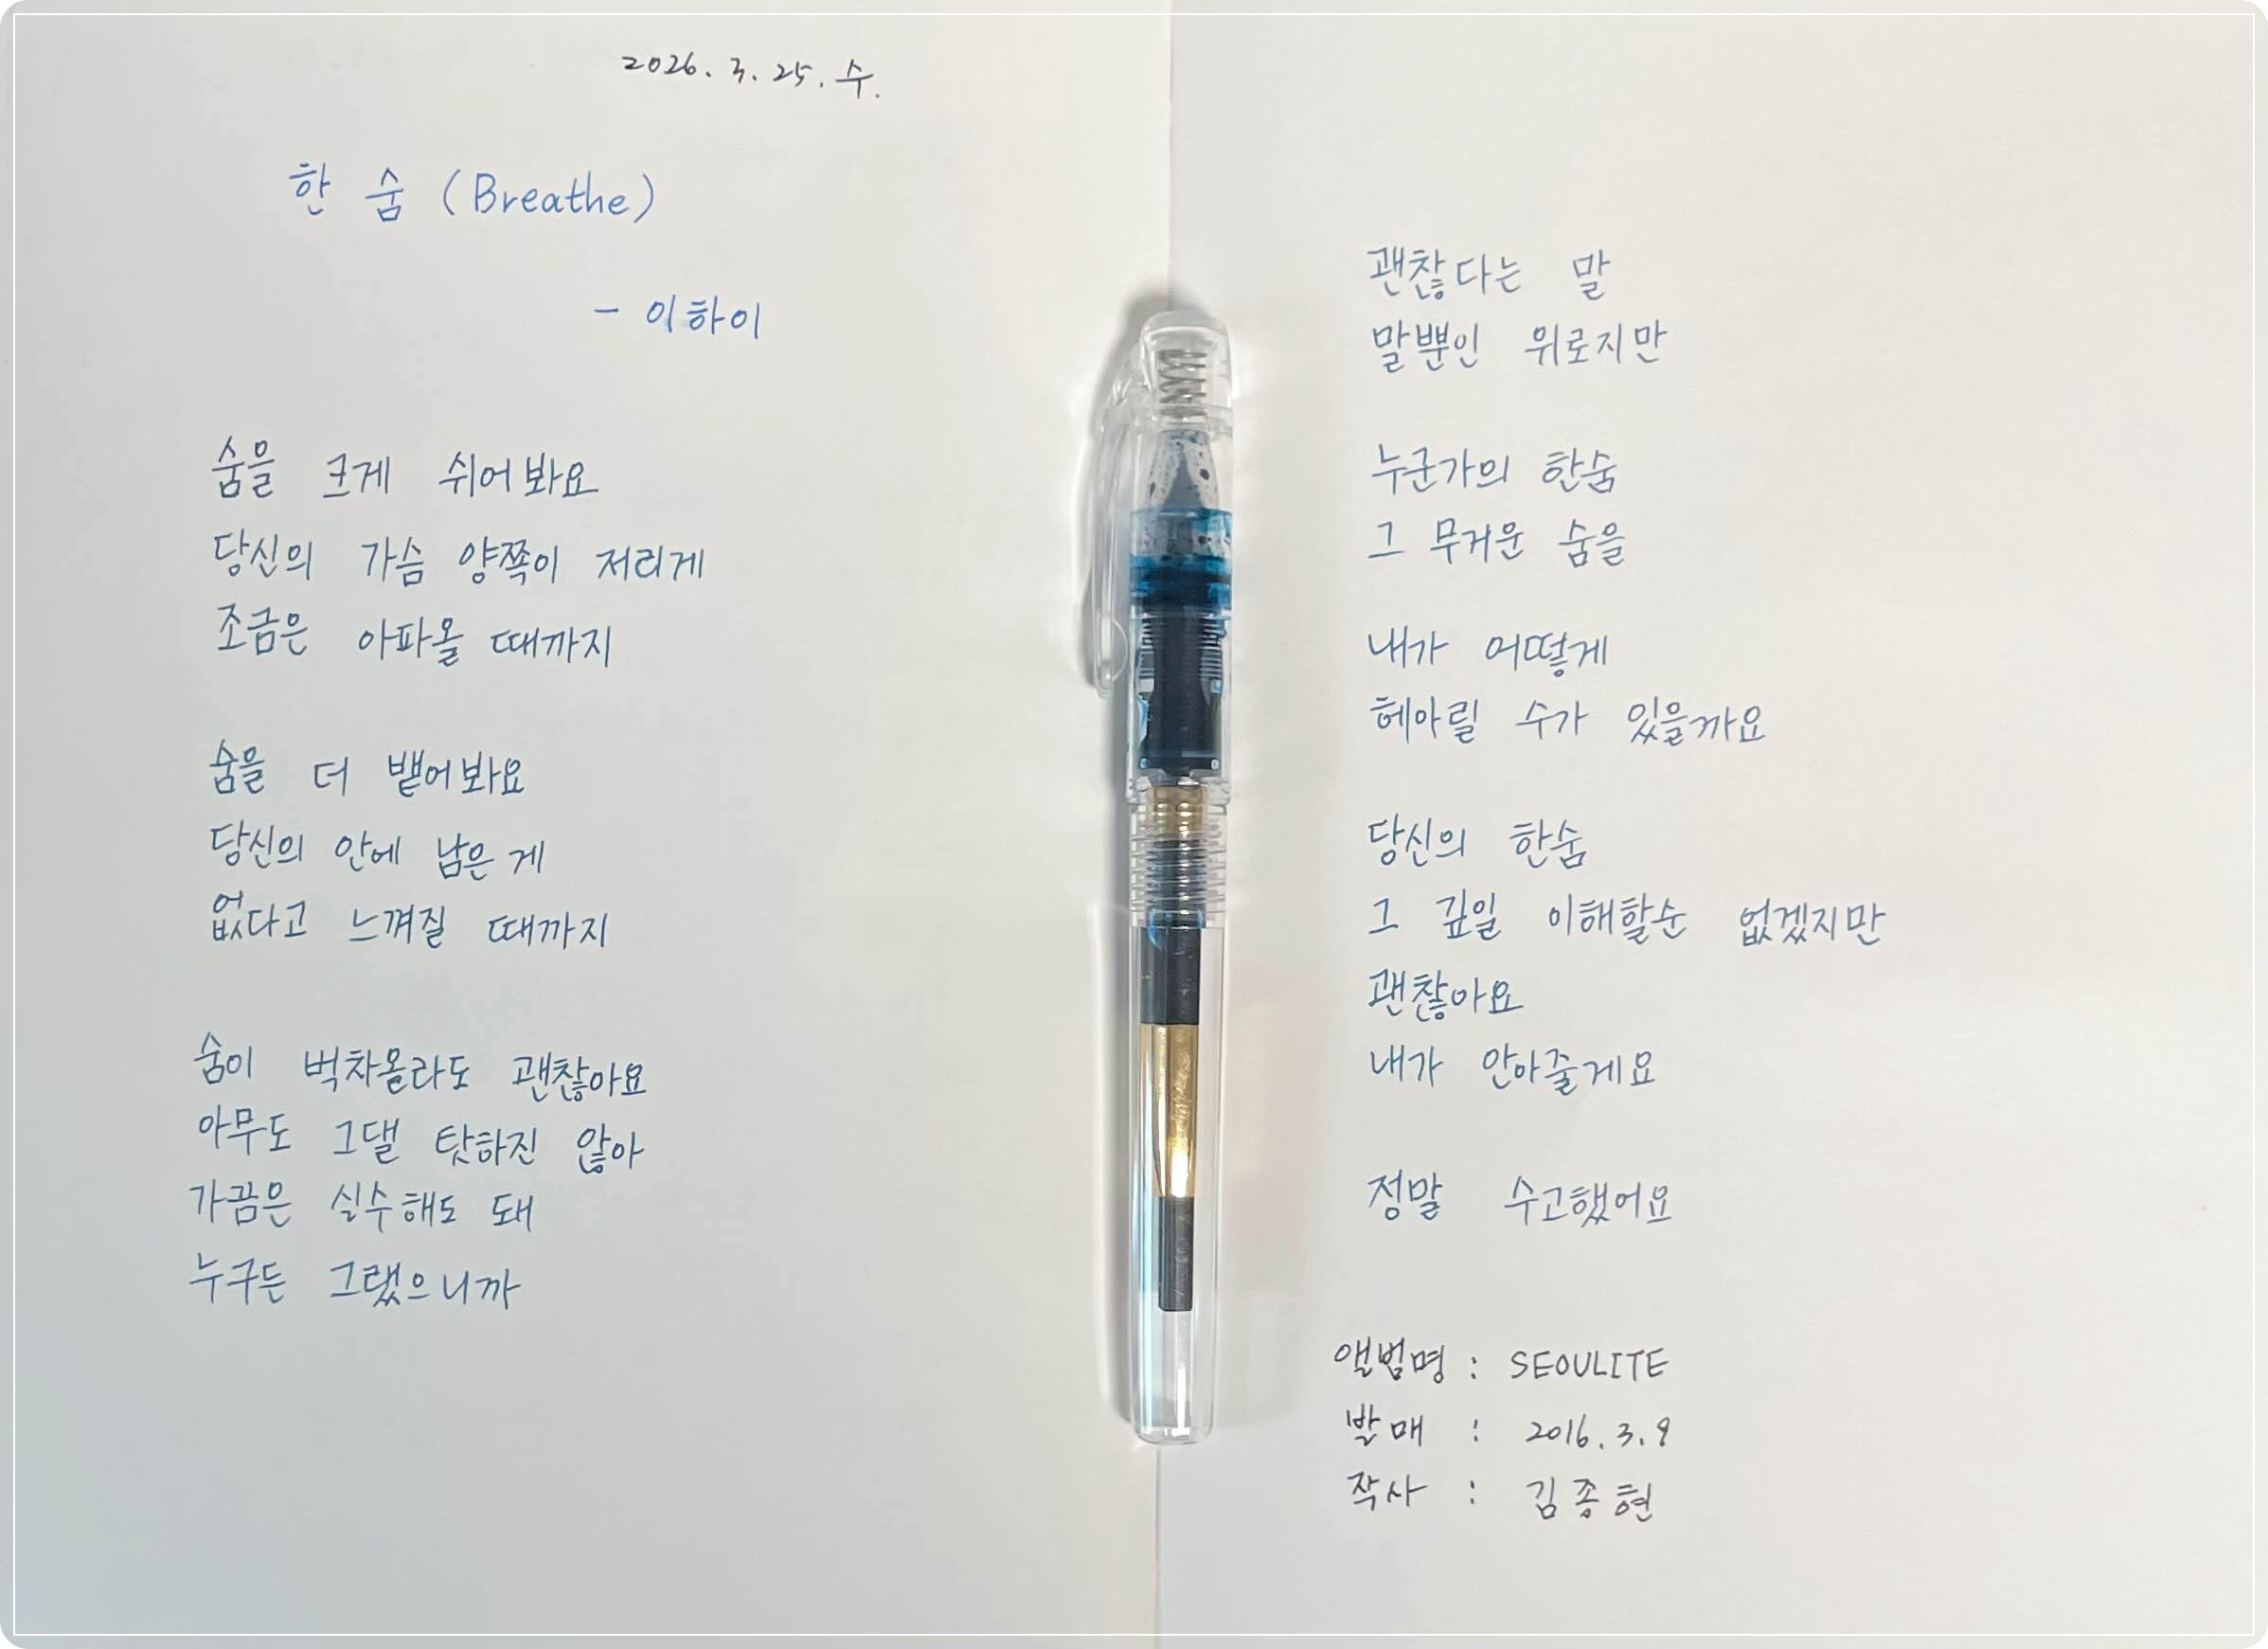 2026. 3. 25. 수.
한 숨 (Breathe)
- 이하이
숨을 크게 쉬어봐요
당신의 가슴 양쪽이 저리게
조금은 아파올 때까지
숨을 더 뱉어봐요
당신의 안에 남은 게
없다고 느껴질 때까지
숨이 벅차올라도 괜찮아요
아무도 그댈 탓하진 않아
가끔은 실수해도 돼
누구든 그랬으니까
괜찮다는 말
말뿐인 위로지만
누군가의 한숨
그 무거운 숨을
내가 어떻게
헤아릴 수가 있을까요
당신의 한숨
그 깊일 이해할순 없겠지만
괜찮아요
내가 안아줄게요
정말 수고했어요
앨범명 : SEOULITE
발매 : 2016. 3. 9
작사 : 김종현